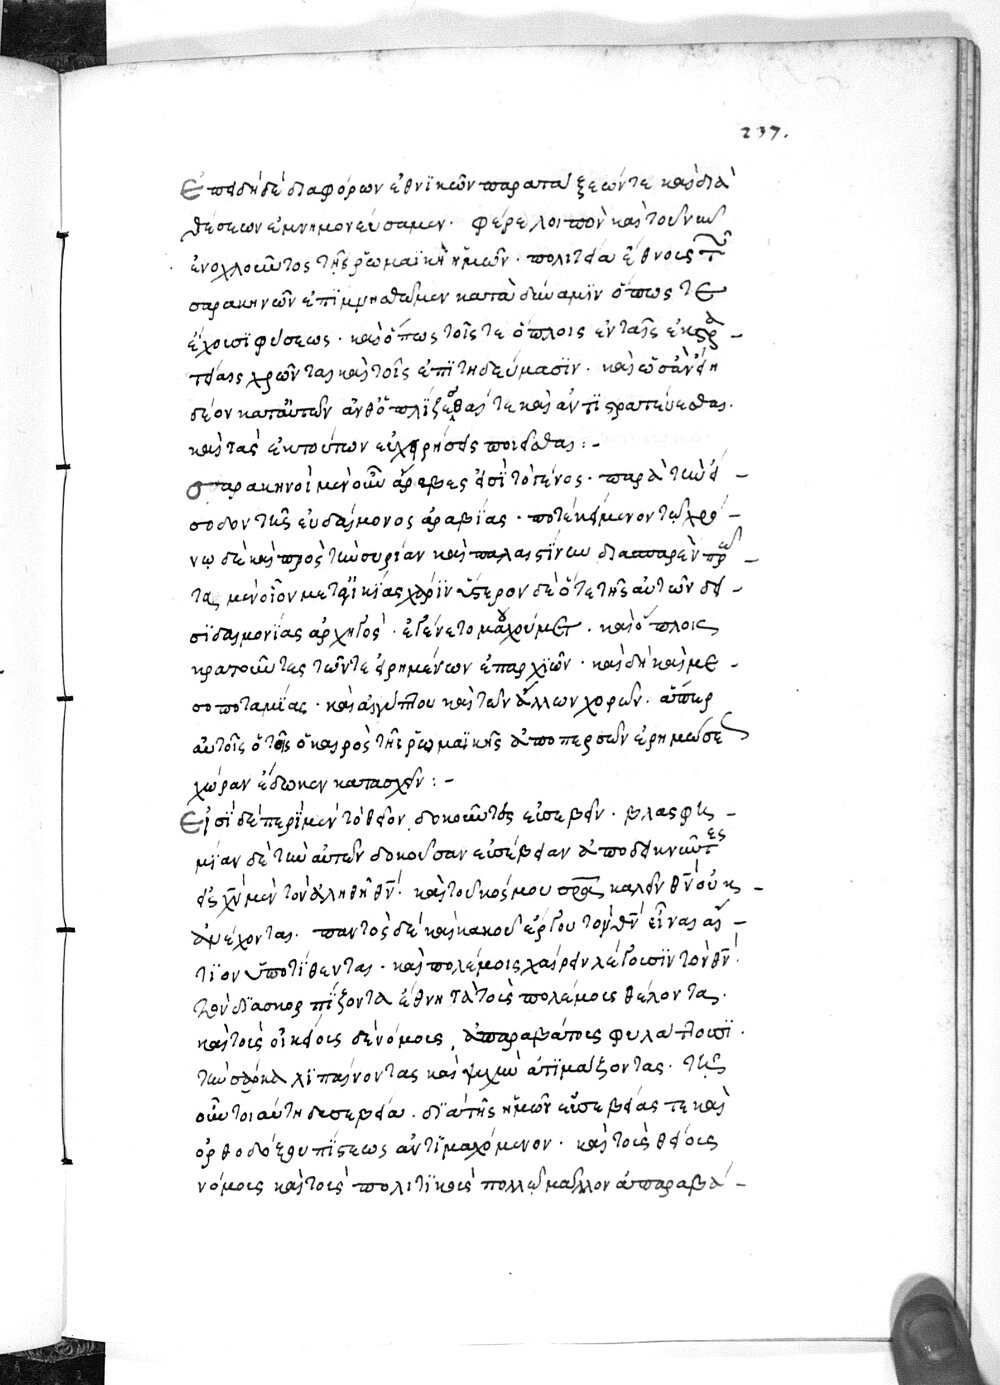 237.
Ἐπειδὴ δὲ διαφόρων ἐθνϊκῶν παρατάξεών τε καὶ δια
θέσεων ἐμνημονεύσαμεν. φέρε λοιπὸν καὶ τοῦ νῦν
ἐνοχλοῦντος τῆς ῥωμαϊκῆ ἡμῶν. πολιτεία ἔθνους τῶν
σαρακηνῶν ἐπϊμνησθῶμεν κατὰ δύναμϊν ὅπως τε
ἔχουσϊ φύσεως. καὶ ὅπως τοῖς τε ὅπλοις ἐν ταῖς ἐκστρα –
τείαις χρῶνται καὶ τοῖς ἐπϊτηδεύμασϊν. καὶ ὡς ἂν εἴη
δέον κατ' αὐτῶν ἀνθοπλίζεσθαί τε καὶ ἀντϊστρατεύεσθαι.
καὶ τὰς ἐκ τούτων εὐχρήσεις ποιεῖσθαι :–
Σαρακηνοὶ μὲν οὖν ἄραβες εἰσϊ τὸ γένος. παρὰ τὴν εἴ –
σοδον τῆς εὐδαίμονος ἀραβίας. ποτὲ κείμενον τῷ χρό –
νῳ δὲ καὶ πρὸς τὴν συρίαν καὶ παλαιστΐνην διασπαρέντες –
τας μὲν οἷον μετοικϊας χάρϊν ὕστερον δὲ ὅτε τῆς αὐτῶν δει –
σϊδαιμονίας ἀρχηγός. ἐγένετο μουχούμετ. καὶ ὅπλοις
κρατοῦντες τῶν τε εἰρημένων ἐπαρχϊῶν. καὶ δὴ καὶ με –
σοποταμίας. καὶ αἰγύπτου καὶ τῶν ἄλλων χορῶν. ἅπερ
αὐτοῖς ὁ τῆς ὁ καιρὸς τῆς ῥωμαϊκῆς ἀπο περσῶν ἐρημώσεως
χώραν ἔδωκεν κατασχεῖν :–
Εἰσϊ δὲ περϊ μὲν τὸ θεῖον δοκοῦντες εὐσεβεῖν. βλασφη –
μίαν δὲ τὴν αὐτῶν δοκοῦσαν εὐσέβειαν ἀποδεικνῦντες
εἰς χν μὲν τὸν ἀληθῆ θν. καὶ τοῦ κόσμου σρα καλεῖν θν οὐκ –
ἀνέχονται. παντὸς δὲ καὶ κακοῦ ἔργου τὸν θν εἶναι αἴ –
τϊον ὑποτΐθενται. καὶ πολέμοις χαίρειν λέγουσϊν τὸν θν.
τὸν διασκορπΐζοντα ἔθνη τὰ τοῖς πολέμοις θέλοντα.
καὶ τοῖς οἰκείοις δὲ νόμοις ἀπαραβάτοις φυλάττουσϊ.
τὴν σάρκα λϊπαίνοντας καὶ ψυχὴν ἀτϊμάζοντας. τῆς
οὖν τοιαύτη δυσεβεία. δϊὰ τῆς ἡμῶν εὐσεβείας τε καὶ
ὀρθοδόξου πΐστεως ἀντϊμαχόμενον. καὶ τοῖς θείοις
νόμοις καὶ τοῖς πολιτϊκοῖς πολλῷ μᾶλλον ἀπαραβά –